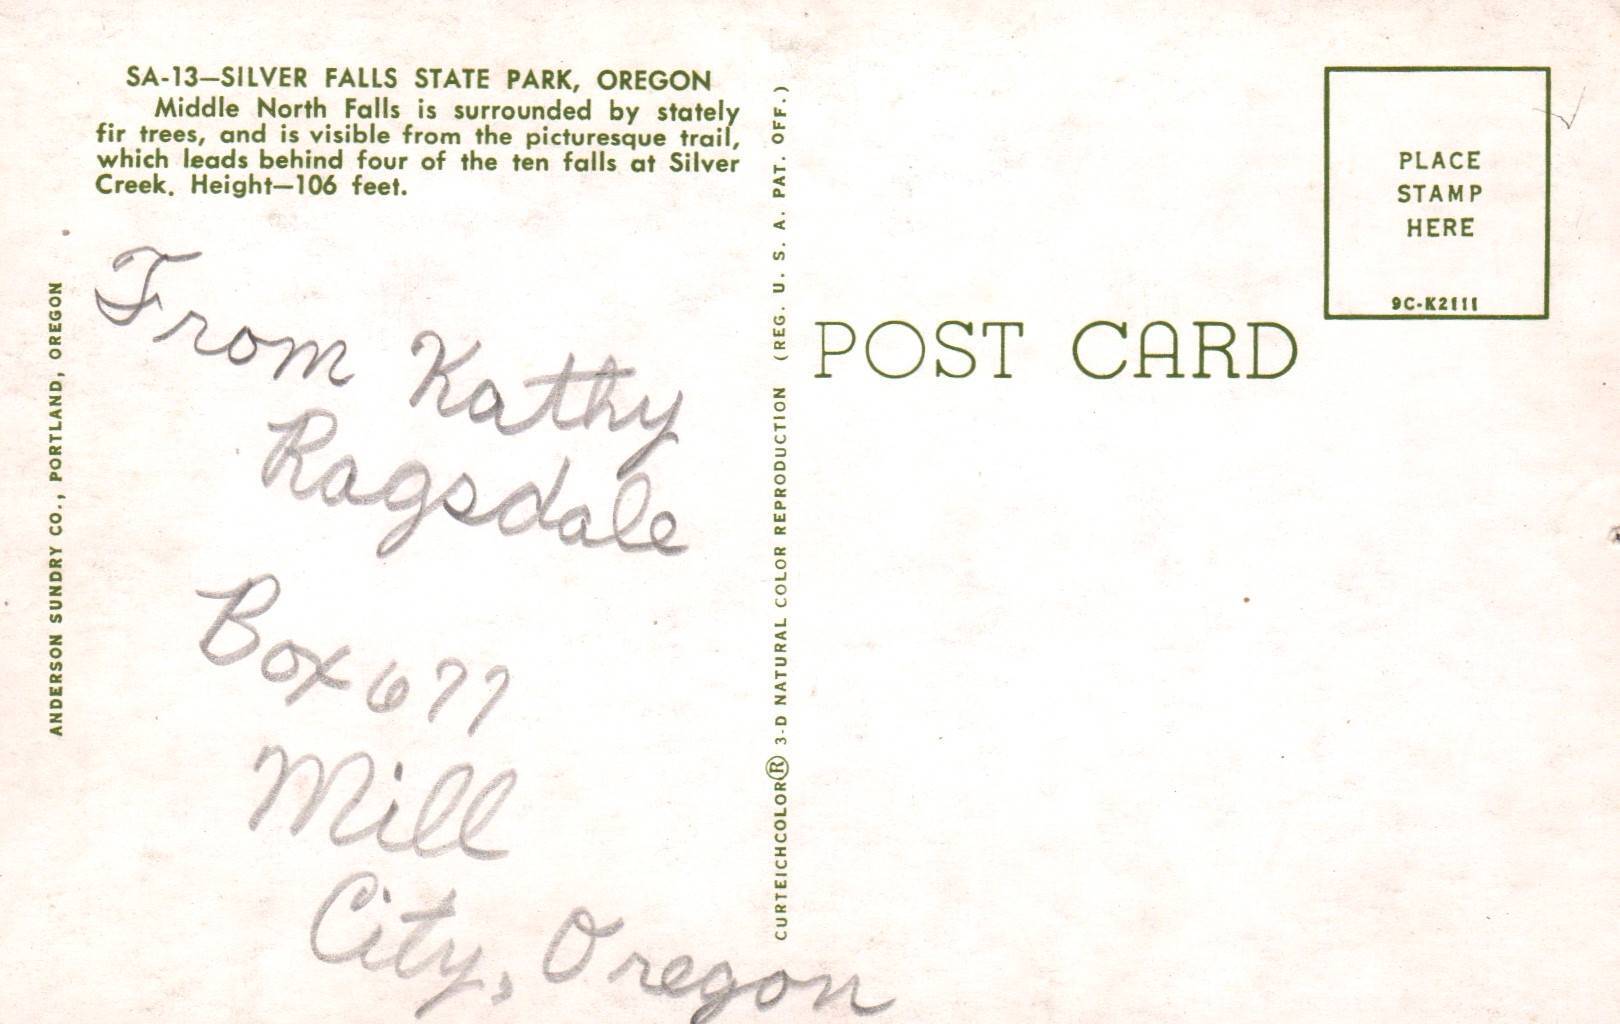 SA-13—SILVER FALLS STATE PARK, OREGON
Middle North Falls is surrounded by stately
fir trees, and is visible from the picturesque trail,
which leads behind four of the ten falls at Silver
Creek. Height—106 feet.
ANDERSON SUNDRY CO., PORTLAND, OREGON
From Kathy
Ragsdale
Box 677
Mill
City, Oregon
CURTEICHCOLOR® 3-D NATURAL COLOR REPRODUCTION (REG. U. S. A. PAT. OFF.)
POST CARD
PLACE
STAMP
HERE
9C-K2111